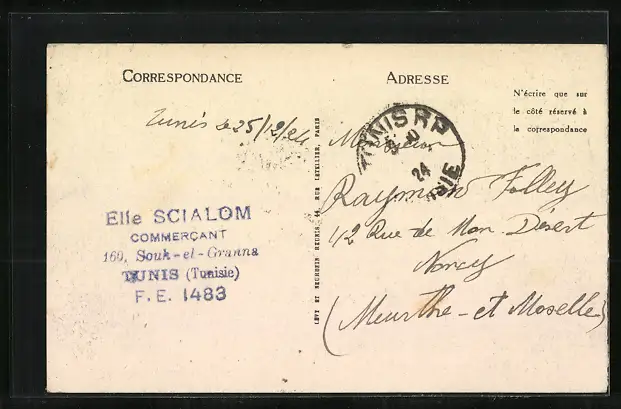 CORRESPONDANCE
ADRESSE
N'écrire que sur
le côté réservé à
la correspondance
Tunis le 25/12/24
TUNIS RP
24
LÉVY ET NEURDEIN RÉUNIS, 44, RUE LETELLIER, PARIS
Monsieur
Raymond Folley
42 Rue de Mon Désert
Nancy
(Meurthe-et Moselle)
Elie SCIALOM
COMMERÇANT
160, Souk-el-Grana
TUNIS (Tunisie)
F.E. 1483